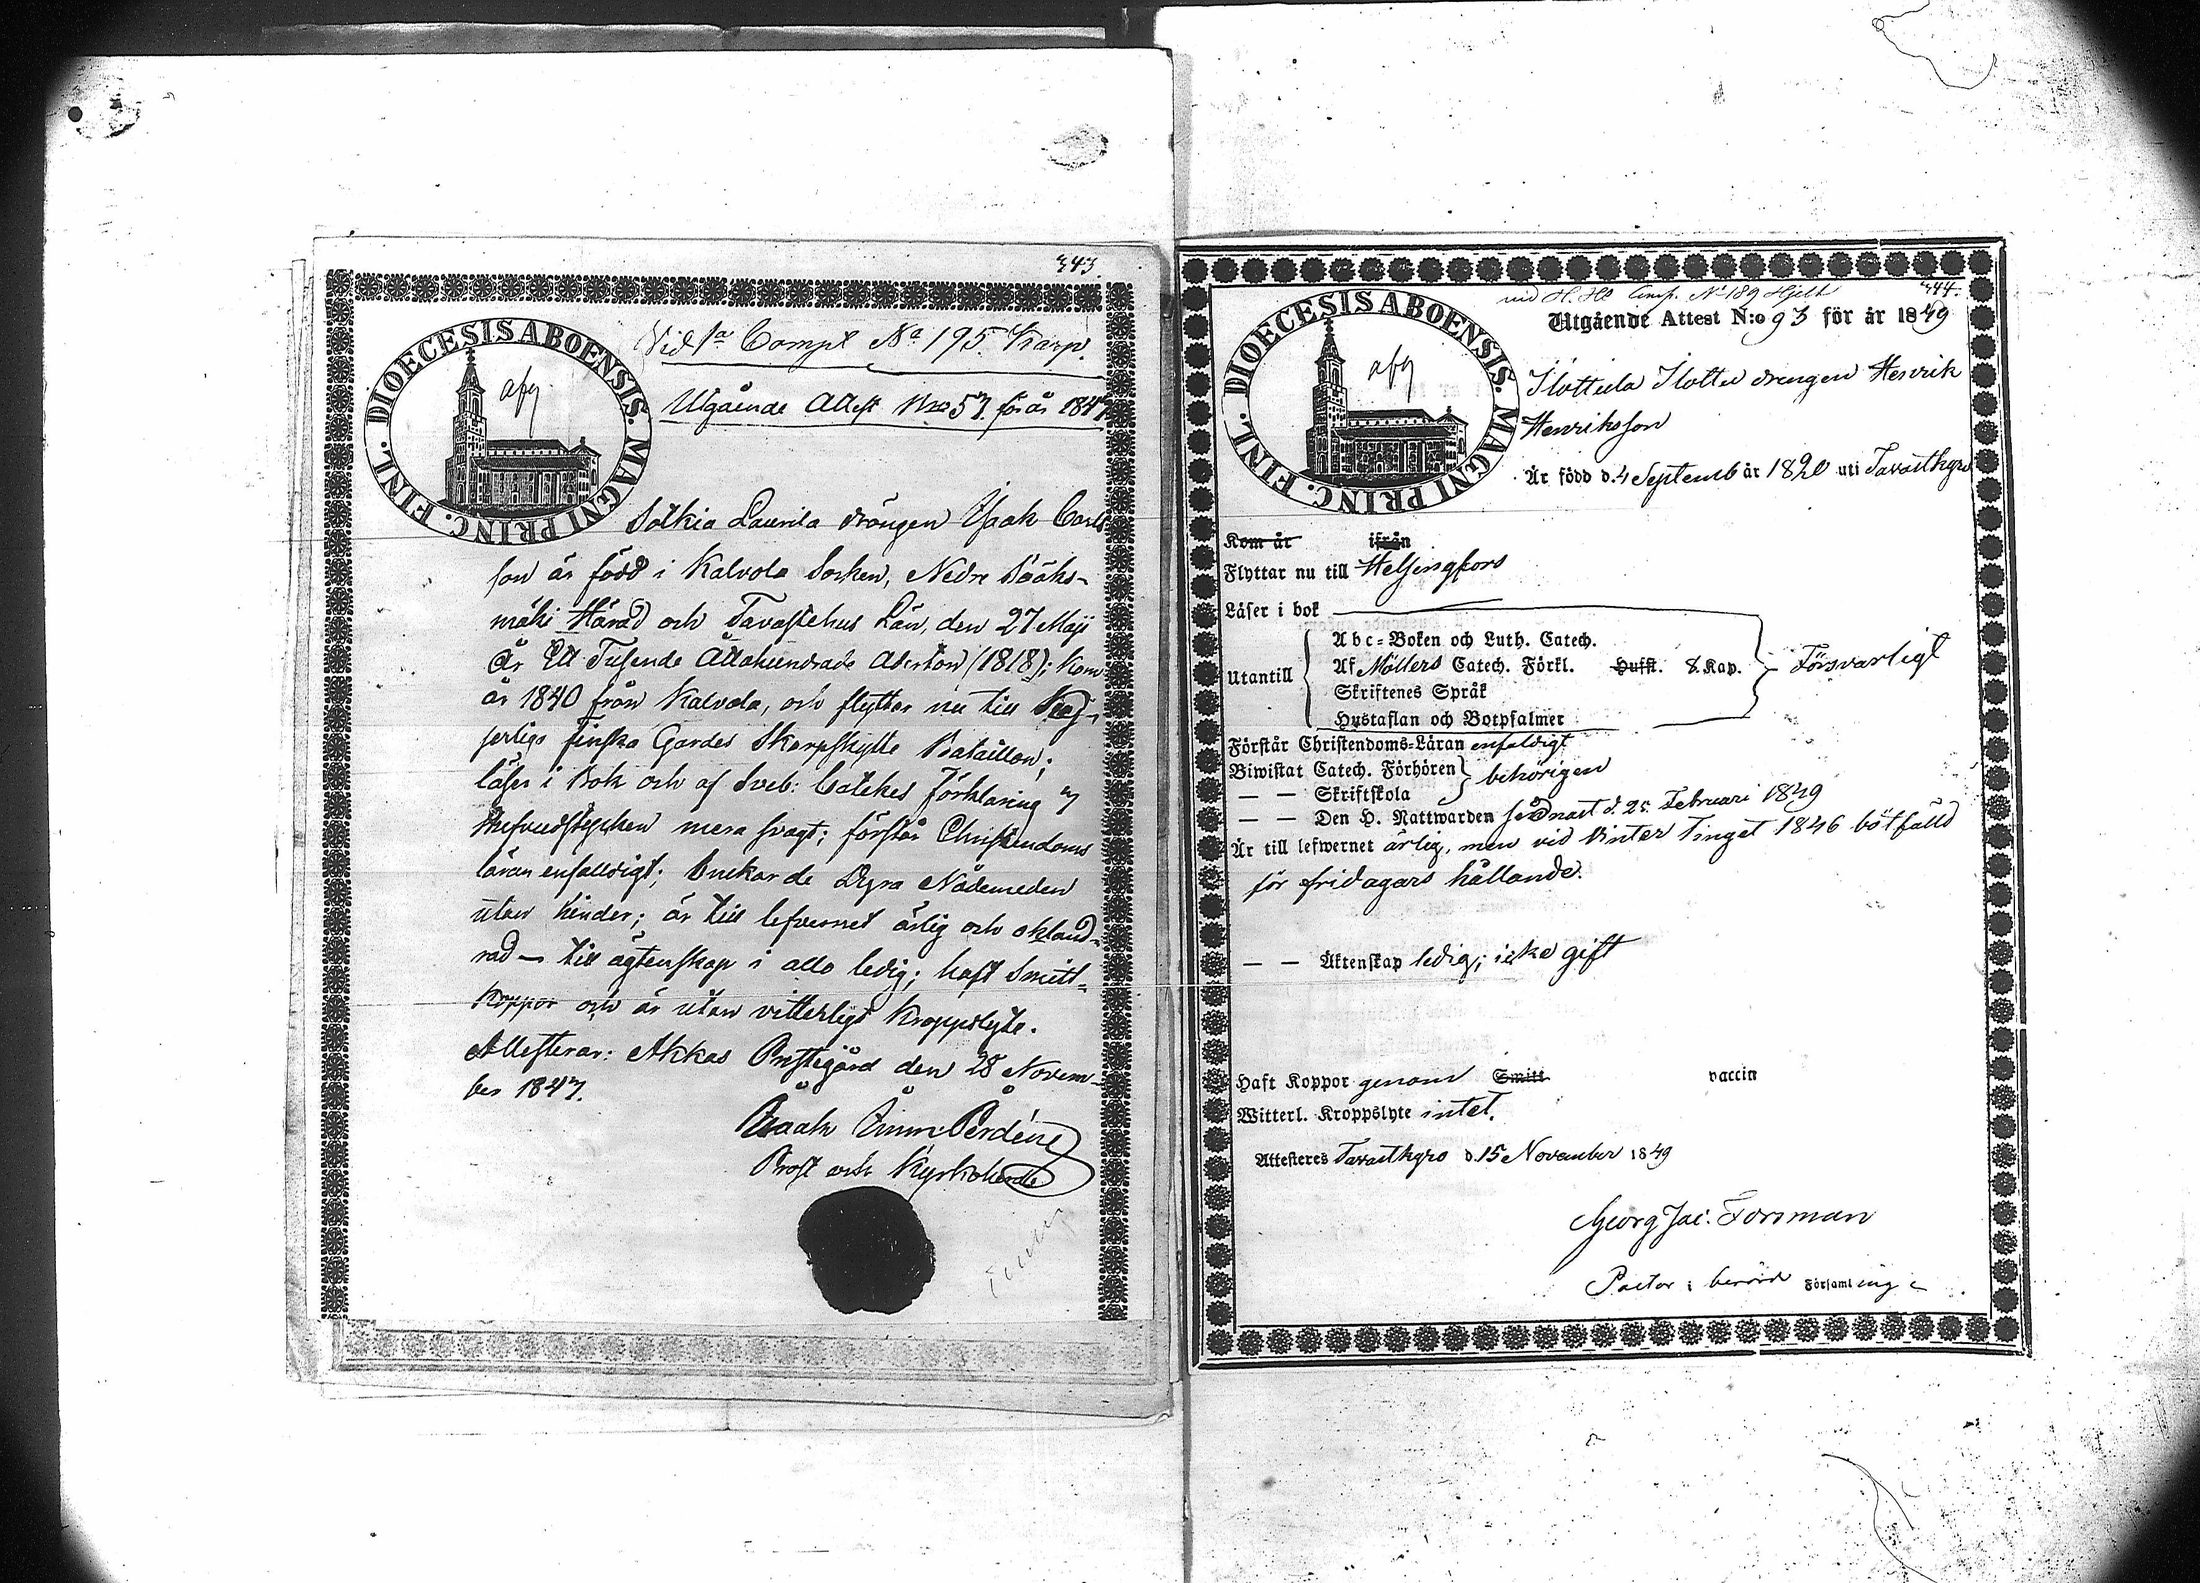 343.
DIOECESIS ABOENSIS. MAGNI PRINC. FINL.
afg
Vid 1a Compt No 195. Karp.
Utgående Attest Nro 57. för år 1847
Sotkia Laurila drängen Isaak Carls
son är född i Kalvola Socken, Nedre Sääks-
mäki Härad och Tavastehus Län, den 27 Maji
År Ett Tusende Åttahundrade Aderton (1818); kom
år 1840 från Kalvola, och flyttar nu till Kej-
serliga finska Gardes Skarpskytte Bataillon;
läser i Bok och af Sveb: Catekes förklaring
Hufvudstycken mera svagt; förstår Christendoms
läran enfalldigt; brukar de Dyra Nådemeden
utan hinder; är till lefvernet ärlig och okland-
rad — till ägtenskap i allo ledig; haft Smitt-
Koppor och är utan vitterligt kroppslyte.
Attesterar: Akkas Prestegård den 28 Novem-
ber 1847.
Isaak Perdén
Prost och Kyrkoherde
344.
vid H. Hs Comp. No 189 Hjelt
DIOECESIS ABOENSIS. MAGNI PRINC. FINL.
afg
Utgående Attest N:o 93 för år 1849
Ilottula Ilottu drengen Henrik
Henriksson
Är född d. 4 Septemb år 1820 uti Tavastkyro
Kom år ifrån
Flyttar nu till Helsingfors
Läser i bok
Utantill
Abc-Boken och Luth. Catech.
Af Möllers Catech. Förkl. Hufst. 8. Kap.
Skriftenes Språk
Hustaflan och Botpsalmer
Försvarligt
Förstår Christendoms-Läran enfaldigt
Biwistat Catech. Förhören
— — Skriftskola
behörigen
— — Den H. Nattwarden sednast d. 25 Februari 1849
Är till lefwernet ärlig, men vid Vinter Tinget 1846 bötfälld
för fridagars hållande.
— — Äktenskap ledig; icke gift
Haft Koppor genom Smitt vaccin
Witterl. Kroppslyte intet.
Attesteres Tavastkyro d. 15 November 1849
Georg Jac: Forsman
Pastor i berörd Församling